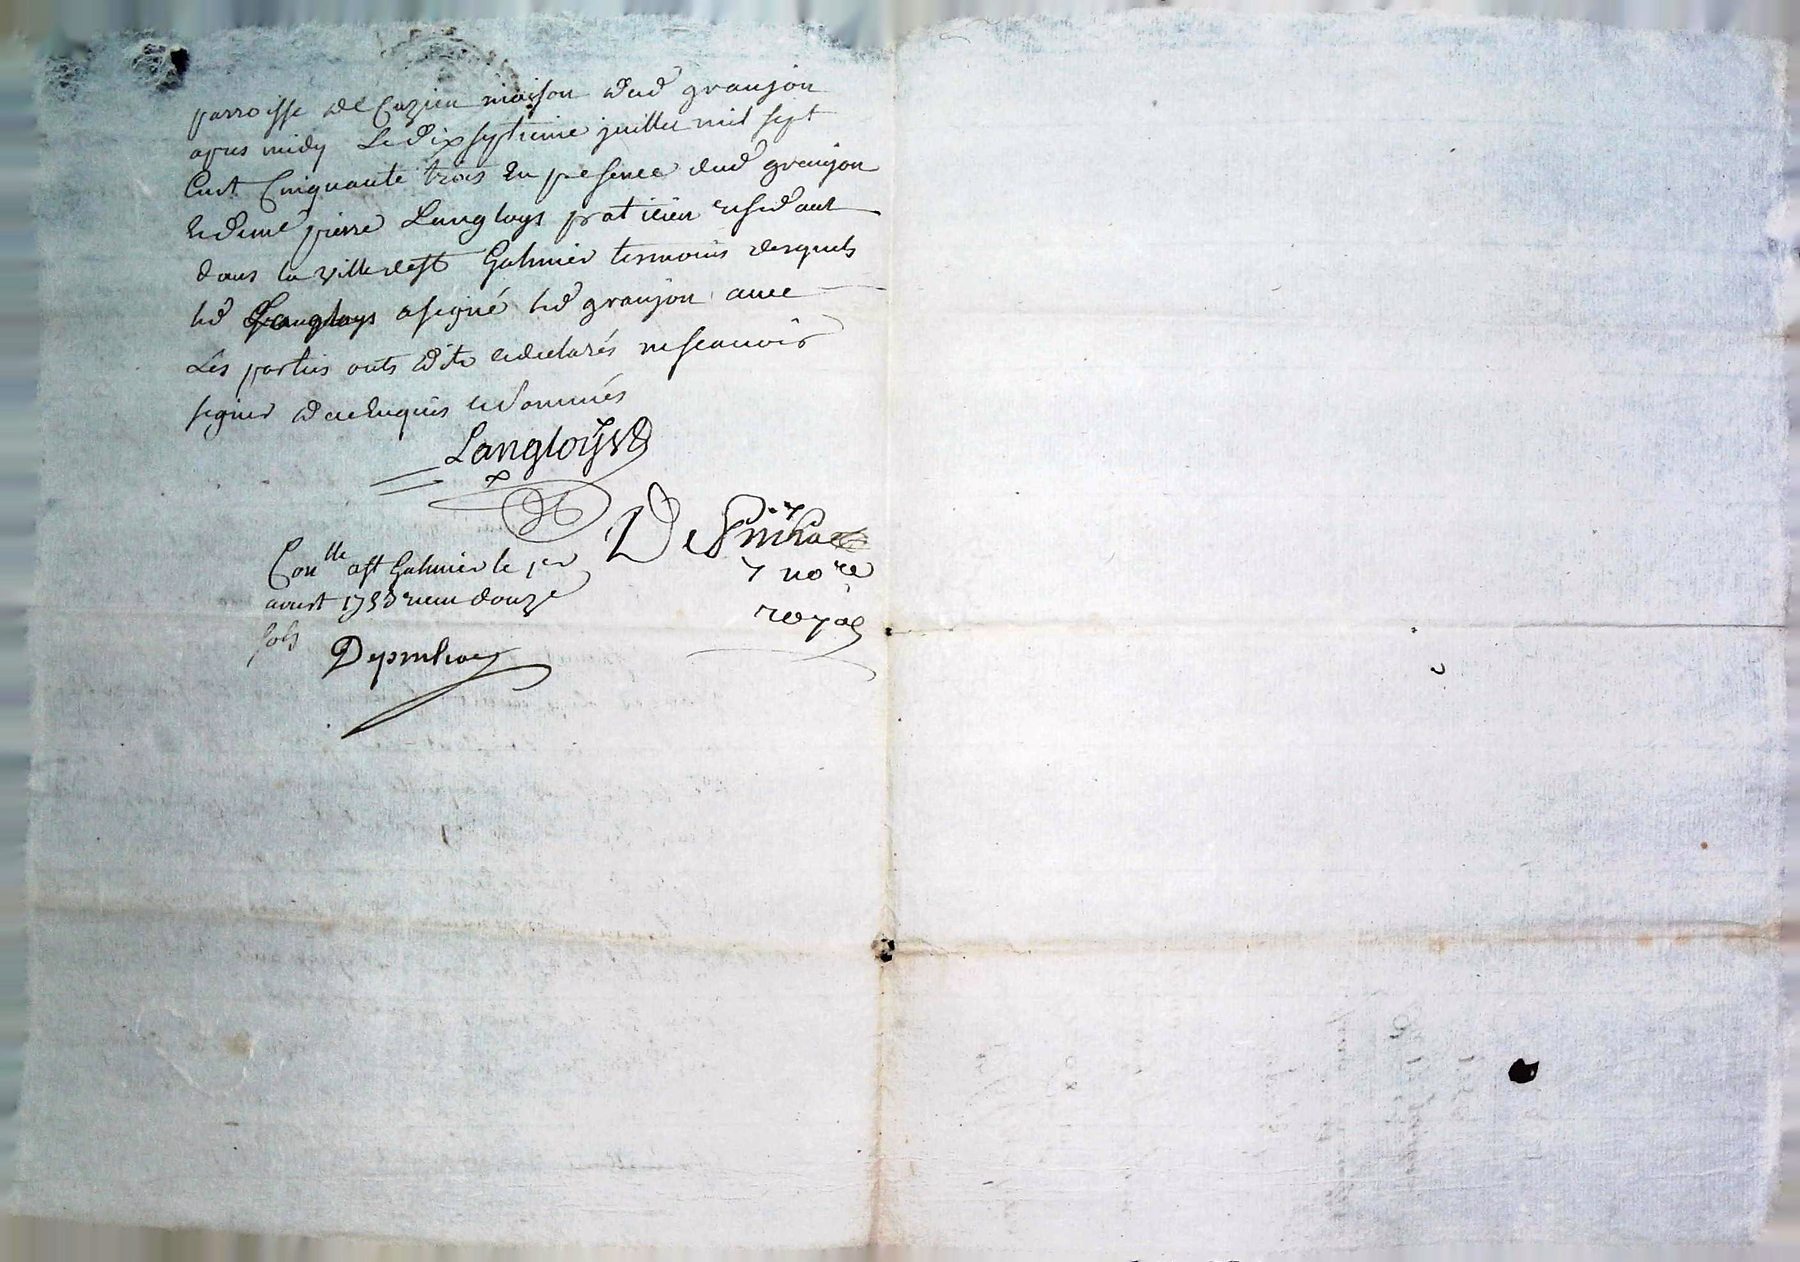 parroisse de Cuzieu maison dud granjon
apres midy Le dix septieme juillet mil sept
Cent Cinquante trois En presence dud granjon
Et de me pierre Langloys praticien residant
dans la ville de st Galmier temoins desquels
led Langloys a signé led granjon avec
Les parties onts dit et declarés ne scavoir
signer de ce Enquis et sommés
Langloys
Despinhac
no.re
royal
Con.lle a st Galmier le per
aoust 1753 recu douze
sols
Depinhac